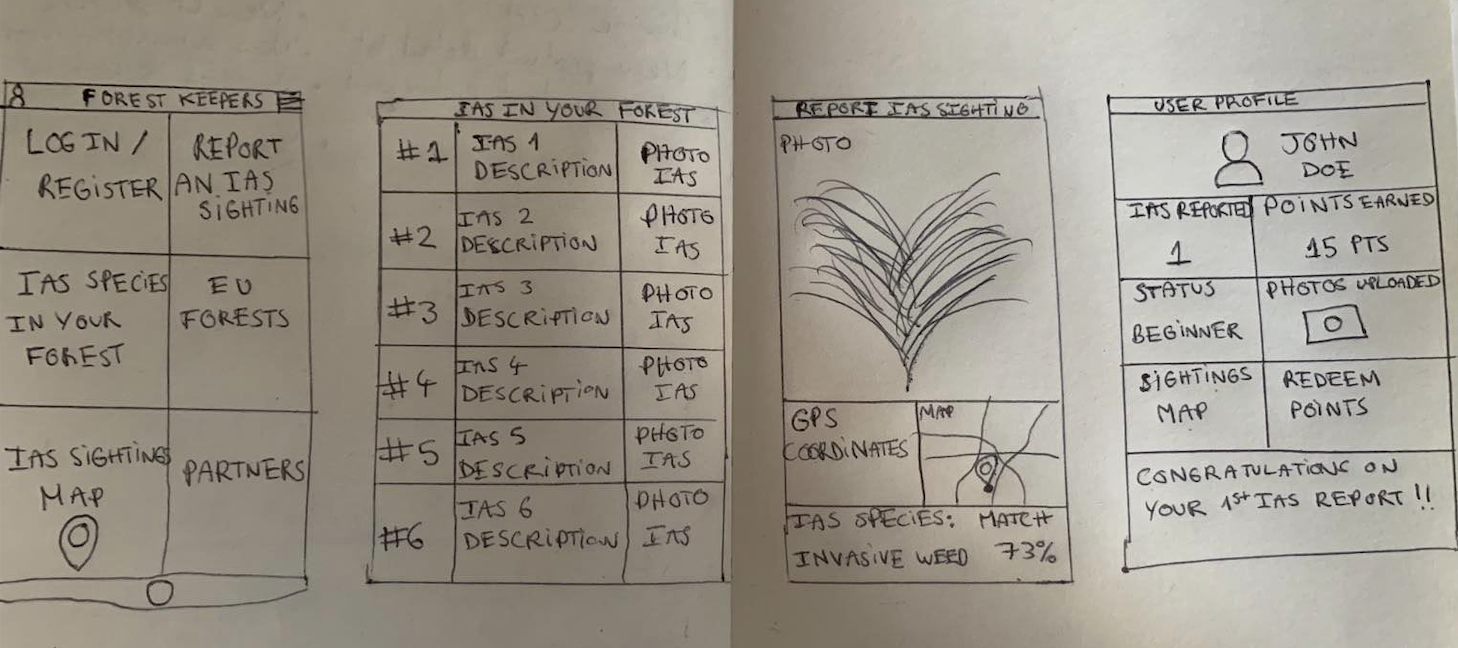 FOREST KEEPERS
LOG IN /
REGISTER
REPORT
AN IAS
SIGHTING
IAS SPECIES
IN YOUR
FOREST
EU
FORESTS
IAS SIGHTING
MAP
PARTNERS
IAS IN YOUR FOREST
#1
IAS 1
DESCRIPTION
PHOTO
IAS
#2
IAS 2
DESCRIPTION
PHOTO
IAS
#3
IAS 3
DESCRIPTION
PHOTO
IAS
#4
IAS 4
DESCRIPTION
PHOTO
IAS
#5
IAS 5
DESCRIPTION
PHOTO
IAS
#6
IAS 6
DESCRIPTION
PHOTO
IAS
REPORT IAS SIGHTING
PHOTO
GPS
COORDINATES
MAP
IAS SPECIES: MATCH
INVASIVE WEED 73%
USER PROFILE
JOHN
DOE
IAS REPORTED
1
POINTS EARNED
15 PTS
STATUS
BEGINNER
PHOTOS UPLOADED
SIGHTINGS
MAP
REDEEM
POINTS
CONGRATULATIONS ON
YOUR 1st IAS REPORT !!